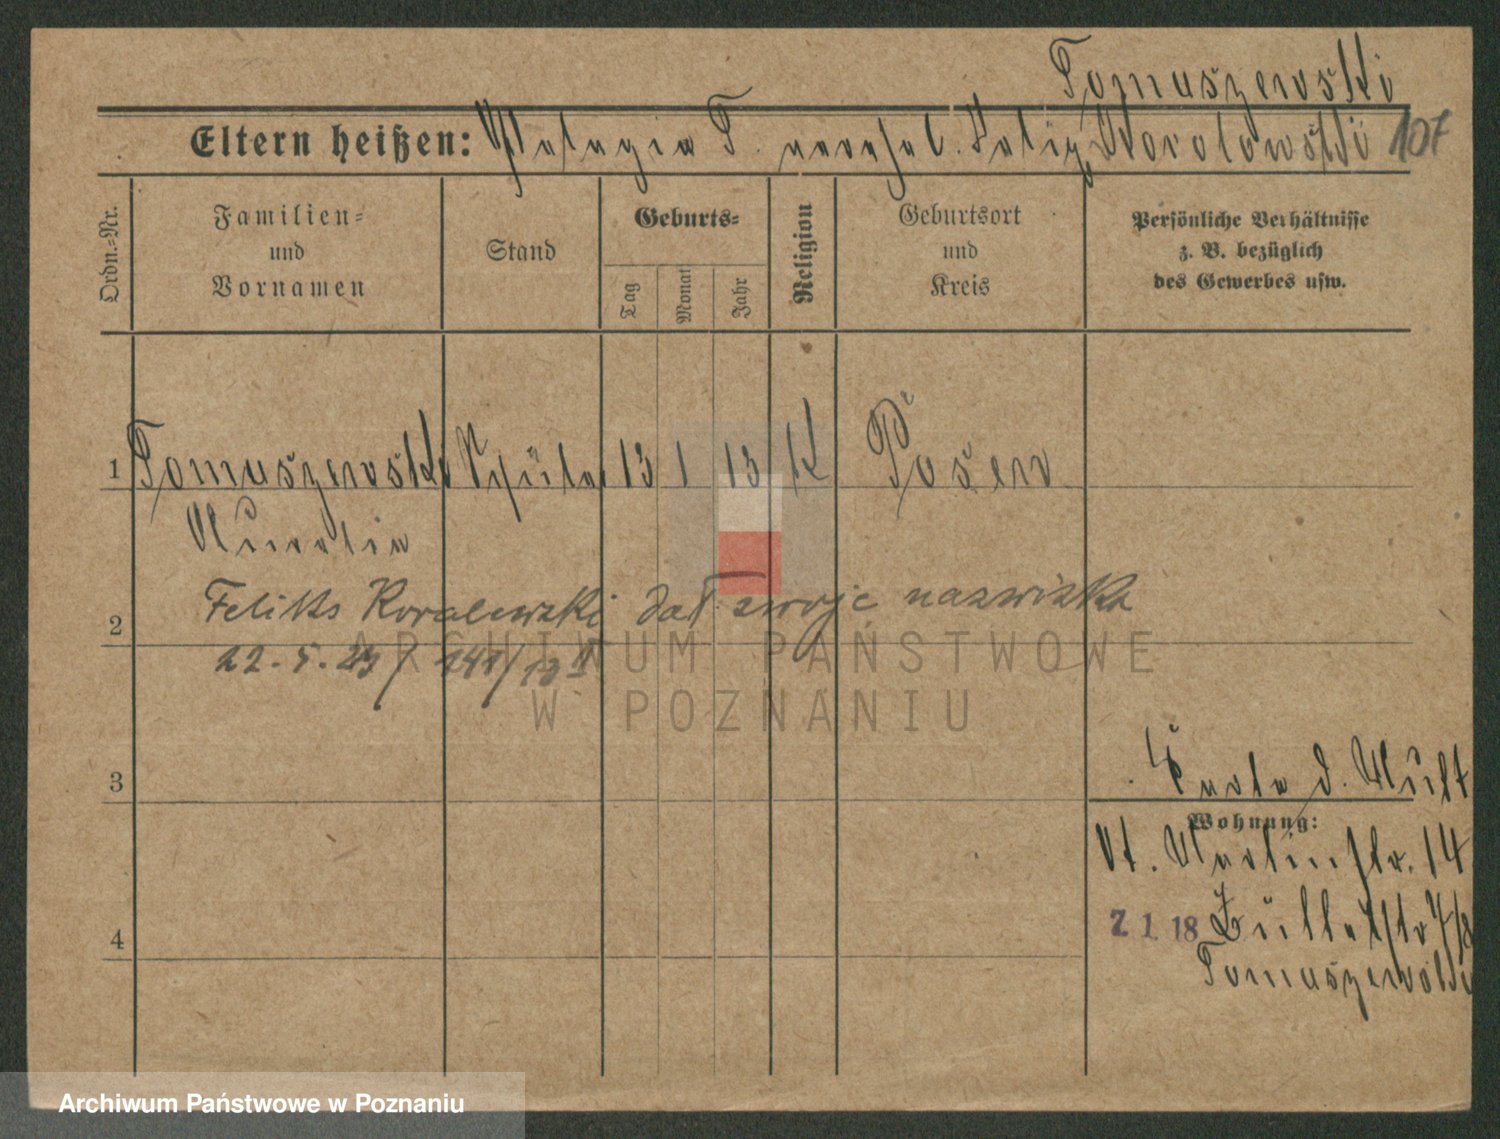 Tomaszewski
Eltern heißen: Pelagia T. 107
Ordn.-Nr.
Familien- und Vornamen
Stand
Geburts-
Tag
Monat
Jahr
Religion
Geburtsort und Kreis
Persönliche Verhältnisse
z. B. bezüglich
des Gewerbes usw.
1 Tomaszewski Schüler 13 1 13 K Posen
Feliks Kowalewski dał swoje nazwisko
2
22.5.
ARCHIWUM PAŃSTWOWE
W POZNANIU
3
Wohnung:
St. Martinstr. 14
2 1 18
4
Tomaszewski
Archiwum Państwowe w Poznaniu